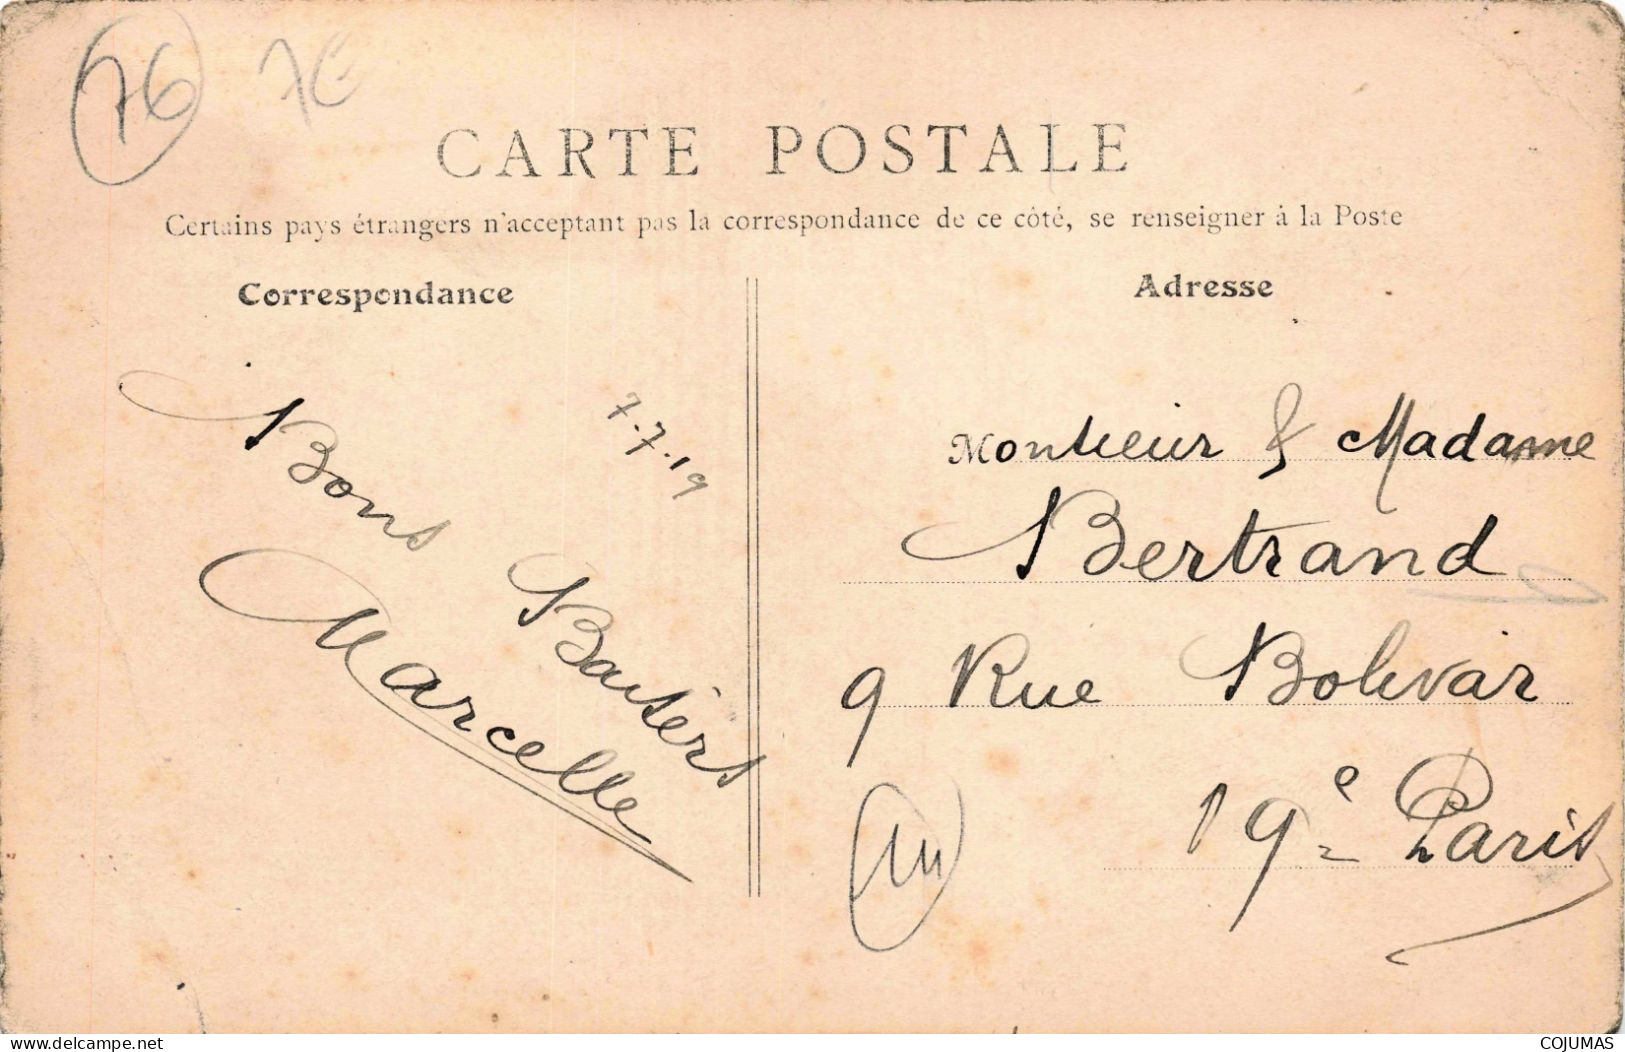 76 76
CARTE POSTALE
Certains pays étrangers n'acceptant pas la correspondance de ce côté, se renseigner à la Poste
Correspondance
7.7.19
Bons Baisérs
Marcelle
Adresse
Monsieur & Madame
Bertrand
9 Rue Bolivar
19e Paris
delcampe.net
COJUMAS